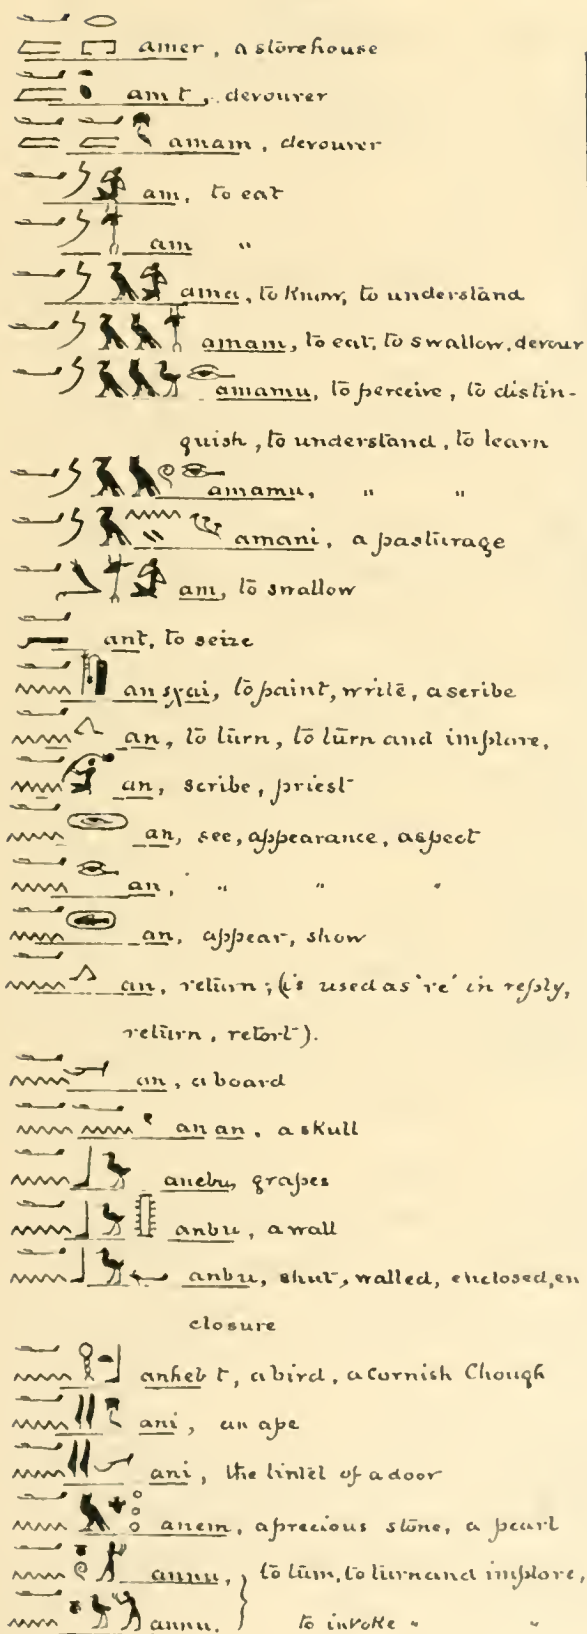 amer, a storehouse
am t, devourer
amam, devourer
am, to eat
am "
ama, to know, to understand
amam, to eat, to swallow, devour
amamu, to perceive, to distin-
guish, to understand, to learn
amamu, " "
amani, a pasturage
am, to swallow
ant, to seize
an sχai, to paint, write, a scribe
an, to turn, to turn and implore,
an, scribe, priest
an, see, appearance, aspect
an, " " "
an, appear, show
an, return; (is used as 're' in reply,
return, retort).
an, a board
an an, a skull
anebu, grapes
anbu, a wall
anbu, shut, walled, enclosed, en
closure
anheb t, a bird, a Cornish Chough
ani, an ape
ani, the lintel of a door
anem, a precious stone, a pearl
annu, to turn, to turn and implore,
annu. to invoke " "